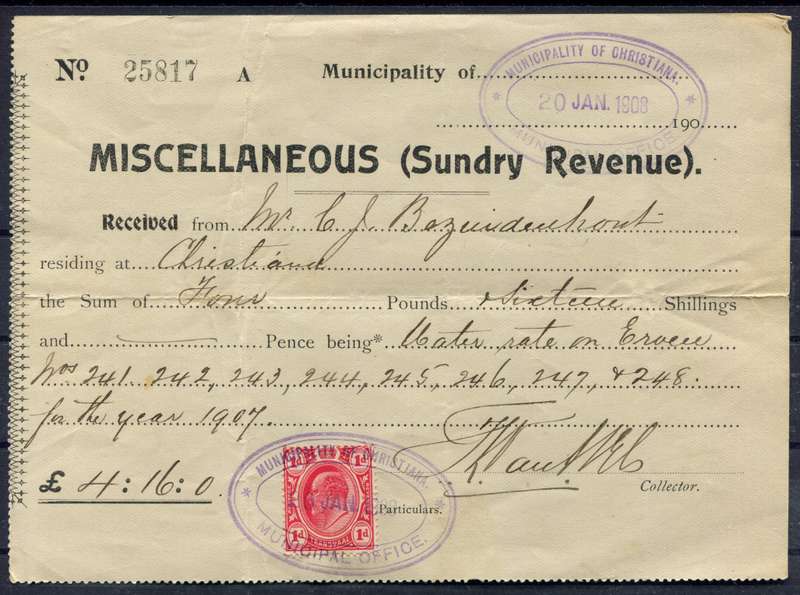 No 25817 A Municipality of
MUNICIPALITY OF CHRISTIANA.
20 JAN. 1908
MUNICIPAL OFFICE.
190
MISCELLANEOUS (Sundry Revenue).
Received from Mr C J Bezuidenhout
residing at Christiana
the Sum of Four Pounds & Sixteen Shillings
and Pence being* Water rate on Erven
Nos 241, 242, 243, 244, 245, 246, 247, & 248.
for the year 1907.
£ 4:16:0
Collector.
MUNICIPALITY OF CHRISTIANA.
JAN. 1908
1d 1d
*Particulars.
1d 1d
MUNICIPAL OFFICE.